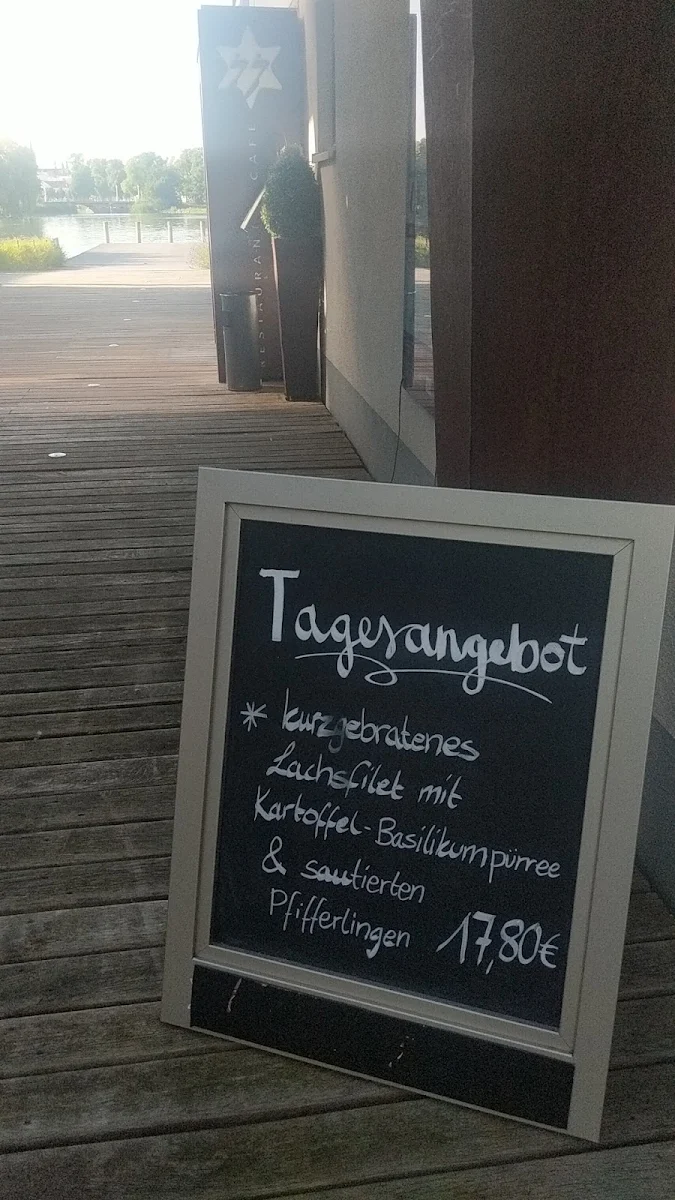 RESTAURANT CAFÉ
Tagesangebot
* kurzgebratenes
Lachsfilet mit
Kartoffel-Basilikumpürree
& sautierten
Pfifferlingen 17,80€